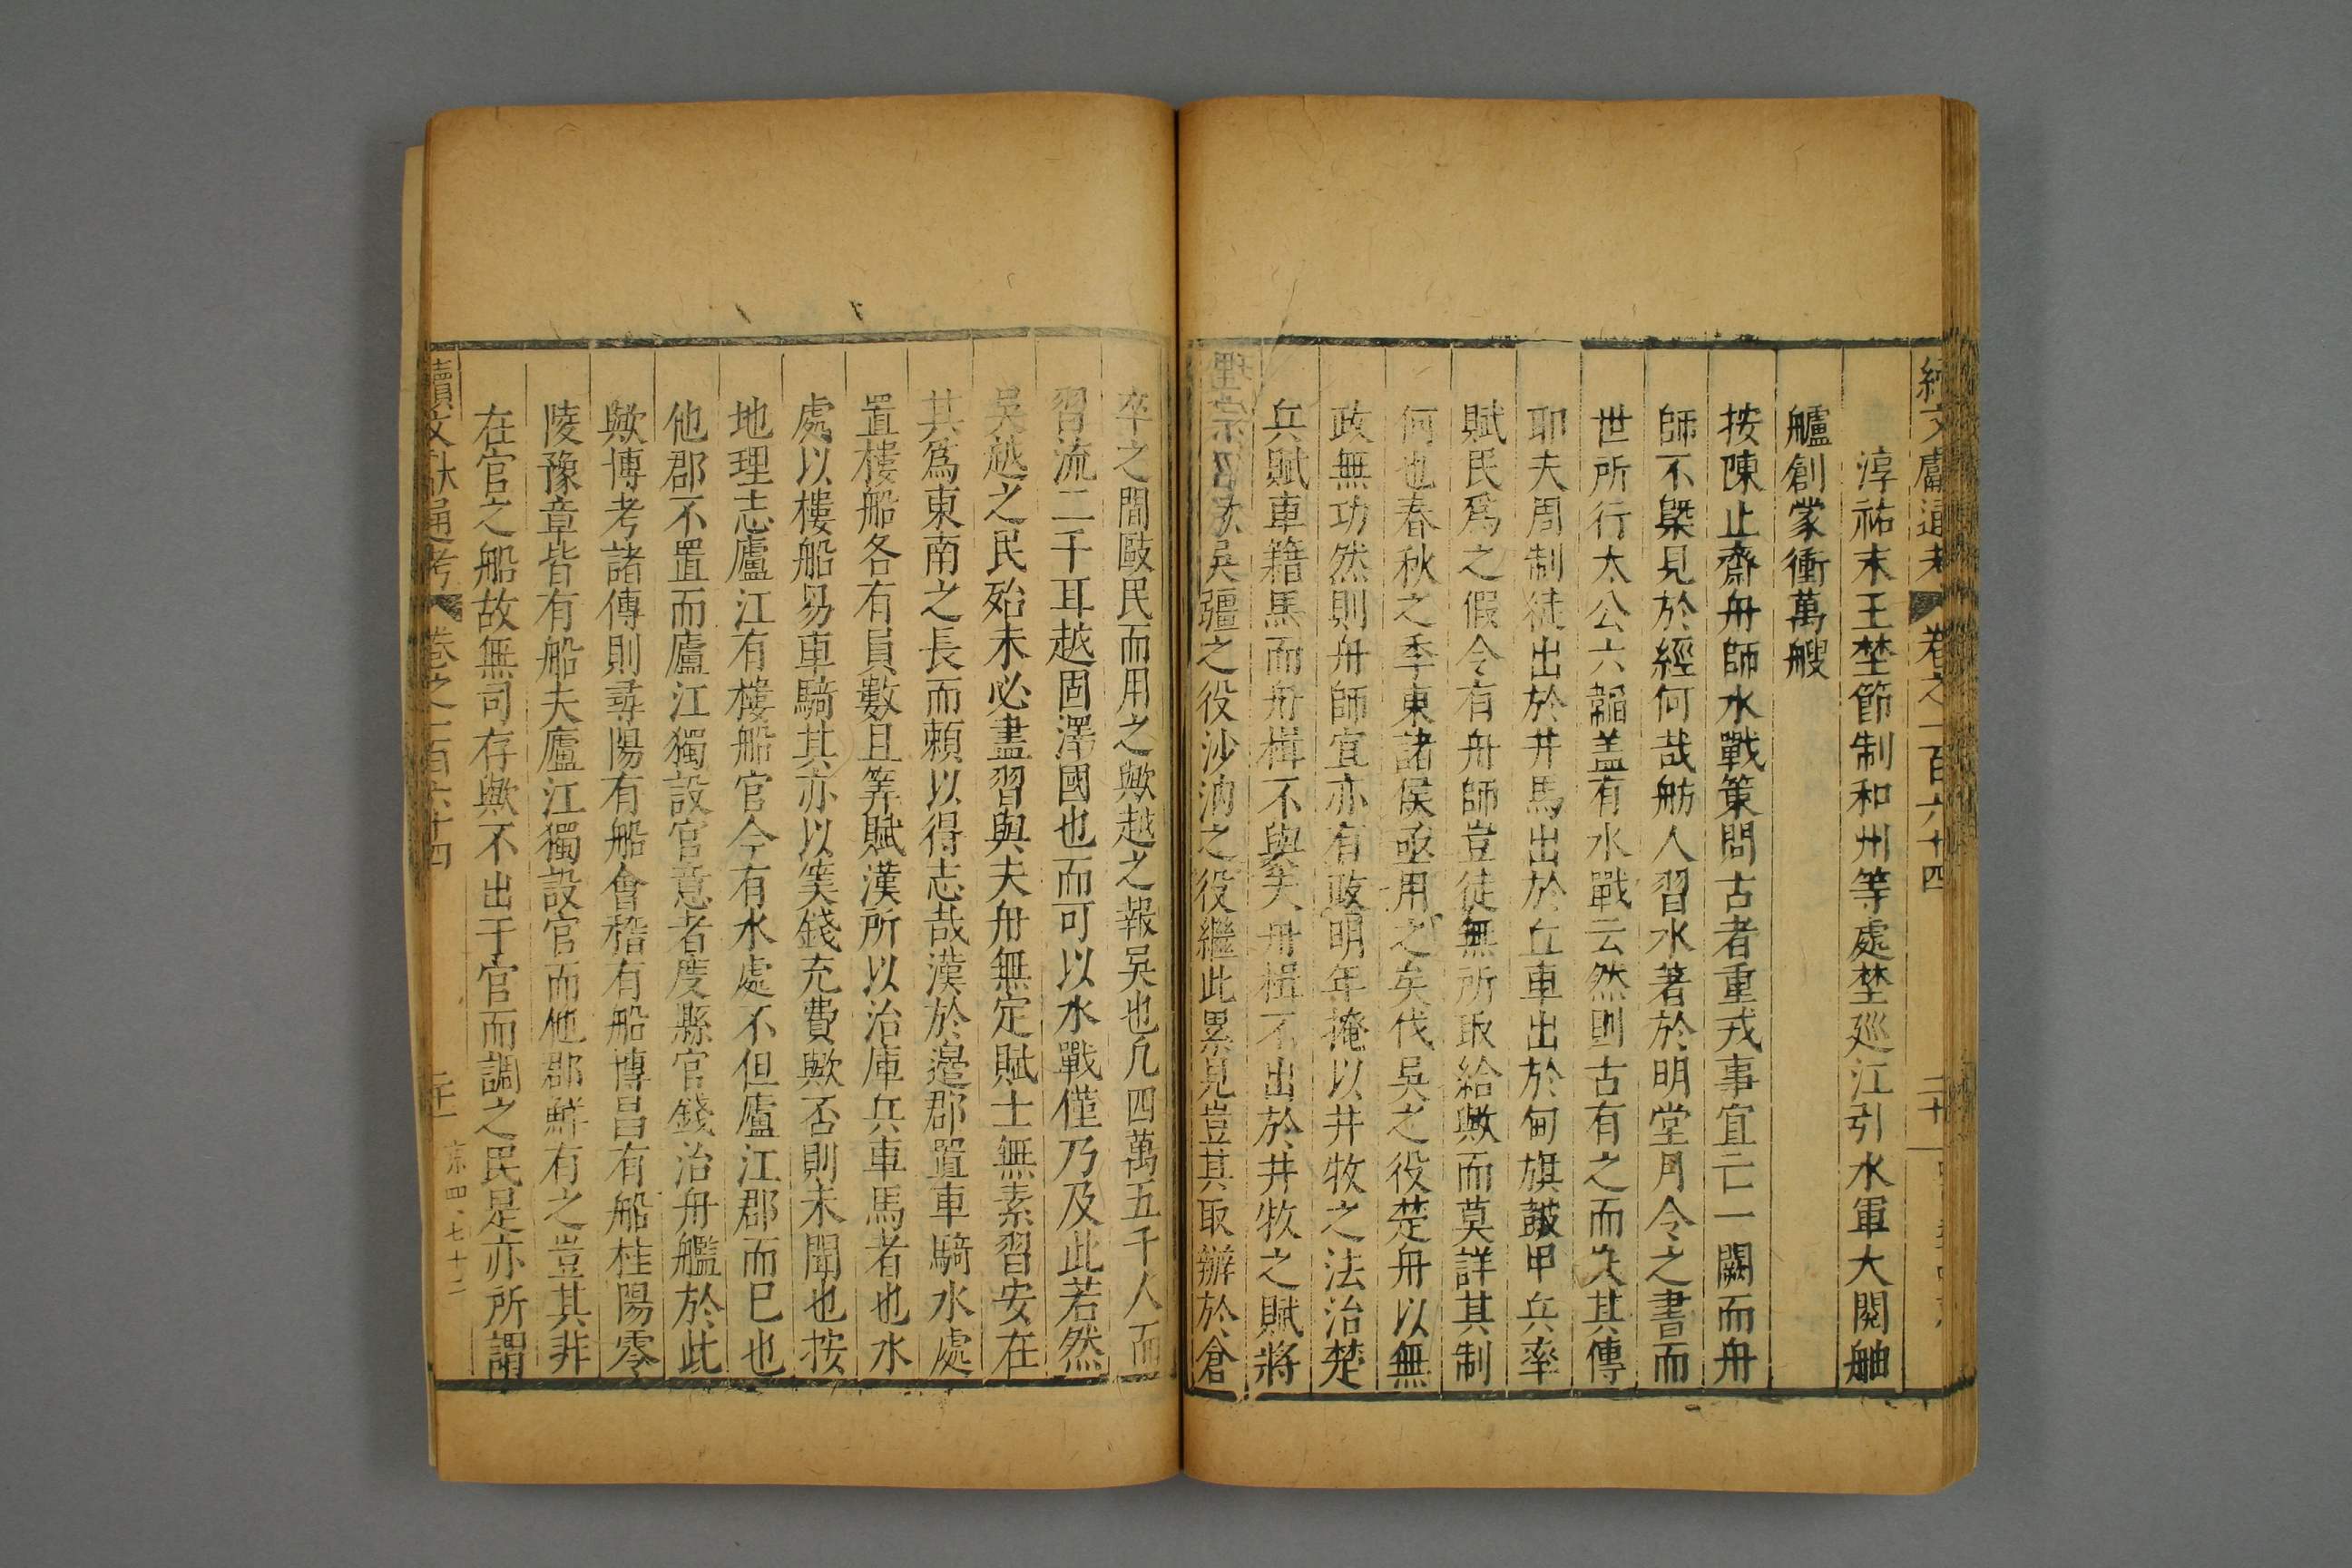 續文獻通考 卷之一百六十四 二十一
淳祐末王埜節制和州等處埜廵江引水軍大閱舳
艫創䝉衝萬艘
按陳止齋舟師水戰策問古者重戎事宜亡一闕而舟
師不槩見於經何哉舫人習水著於明堂月令之書而
世所行太公六韜盖有水戰云然則古有之而久其傳
耶夫周制徒出於井馬出於丘車出於甸旗鼓甲兵率
賦民爲之假令有舟師豈徒無所取給歟而莫詳其制
何也春秋之季東諸侯亟用之矣伐吳之役楚舟以無
政無功然則舟師宜亦有政明年掩以井牧之法治楚
兵賦車籍馬而舟楫不與矣舟楫不出於井牧之賦將
吳疆之役沙汭之役繼此累見豈其取辦於倉
卒之間敺民而用之歟越之報吳也凡四萬五千人而
習流二千耳越固澤國也而可以水戰僅乃及此若然
吳越之民殆未必盡習與夫舟無定賦士無素習安在
其爲東南之長而頼以得志哉漢於邉郡置車騎水處
置樓船各有員數且筭賦漢所以治庫兵車馬者也水
處以樓船易車騎其亦以筭錢充費歟否則未聞也按
地理志廬江有樓船官今有水處不但廬江郡而巳也
他郡不置而廬江獨設官意者度縣官錢治舟艦於此
歟博考諸傳則尋陽有船會稽有船博昌有船桂陽零
陵豫章皆有船夫廬江獨設官而他郡鮮有之豈其非
在官之船故無司存歟不出于官而調之民是亦所謂
續文獻通考 卷之一百六十四 四七十二